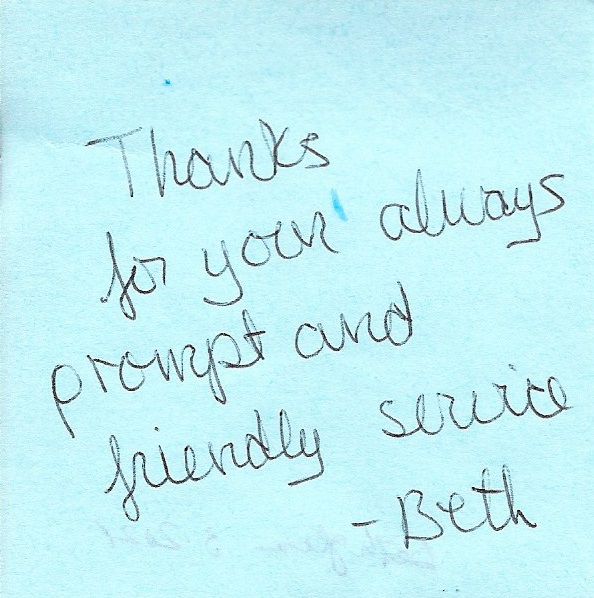 Thanks
for your always
prompt and
friendly service
-Beth